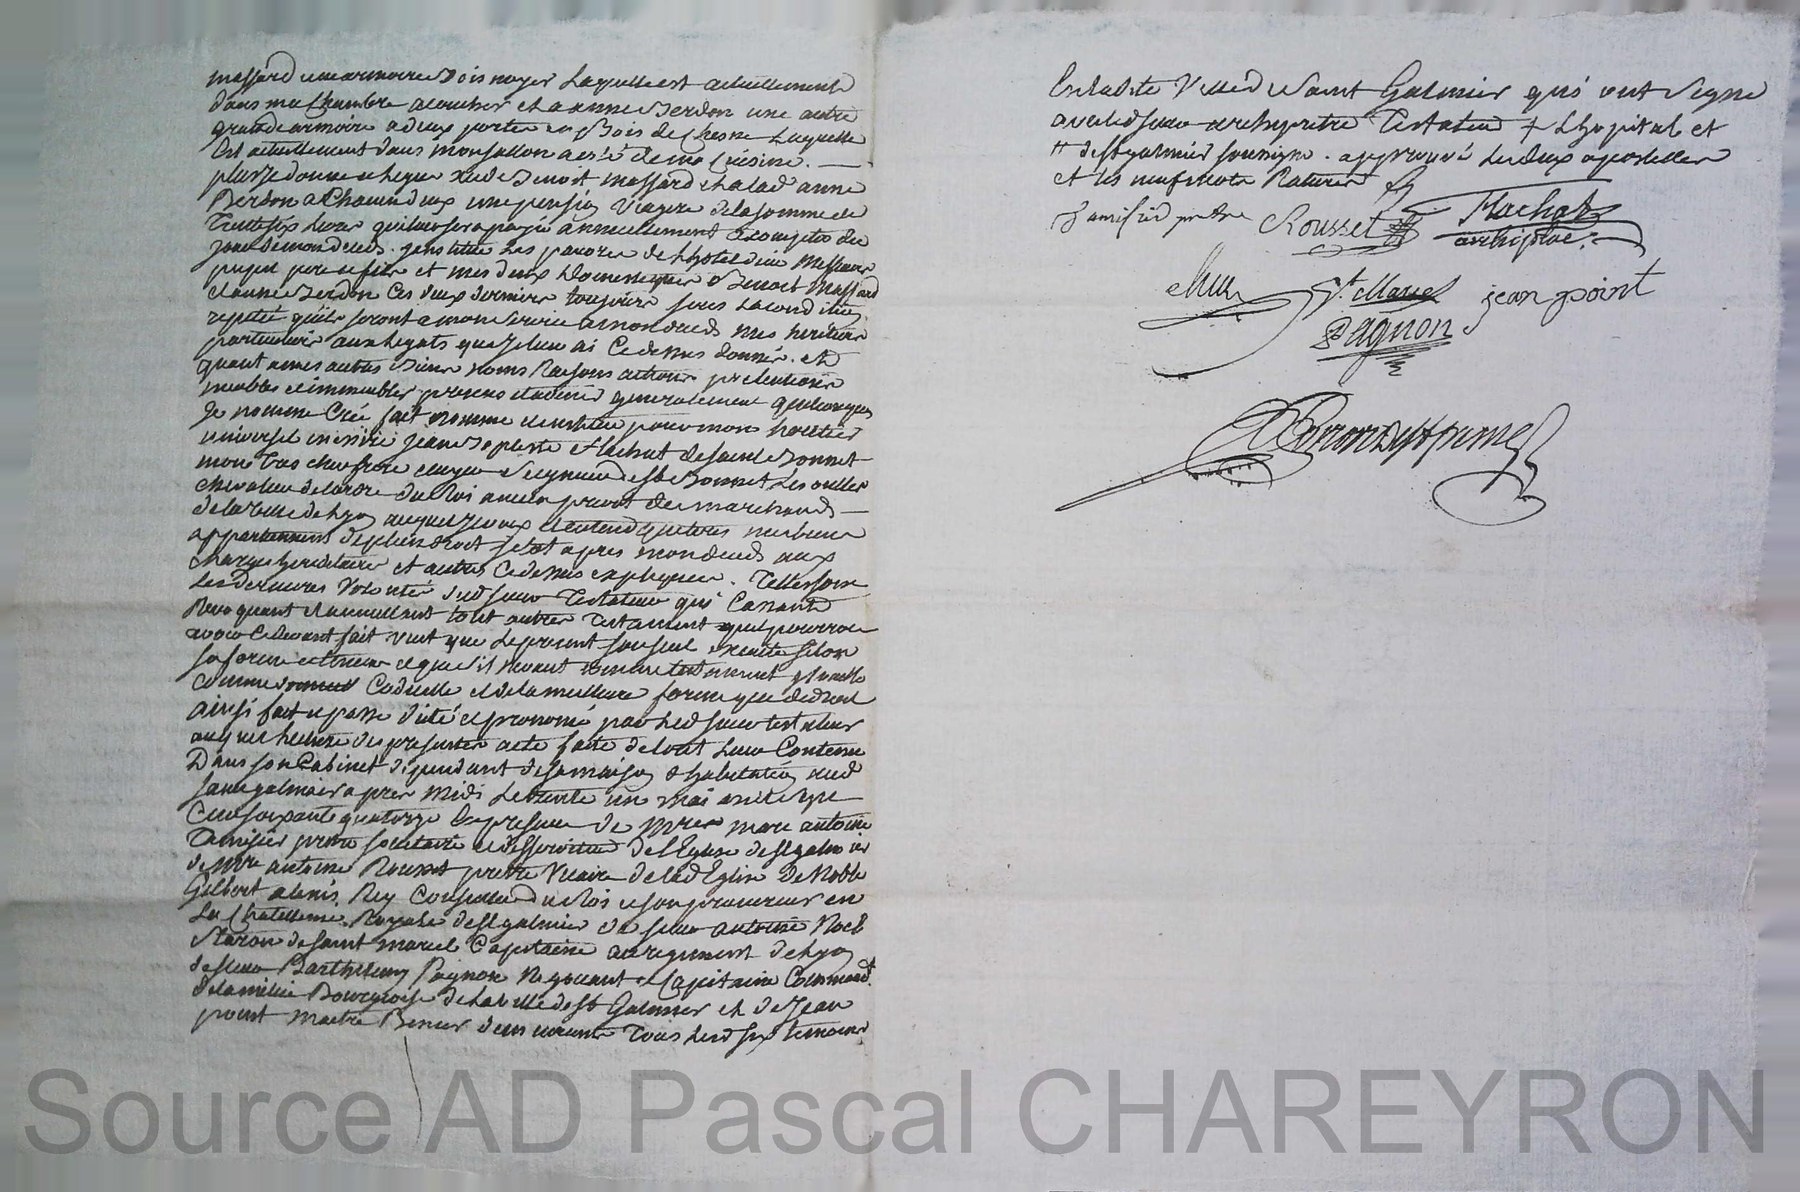 massard une armoire Bois noyer Laquelle est actuellement
dans ma Chambre a coucher et a anne Berdon une autre
grande armoire a deux portes en Bois de Chesne Laquelle
Est actuellement dans mon sallon a coté de ma Cuisine. —
plus je donne et legue aud Benoit massard et a lad anne
Berdon a Chacun d'eux une pension Viagere de la somme de
Trente six Livres qui leur sera payée annuellement a compter du
jour de mon deces. j'institue Les pauvres de L'hotel dieu Messieurs
pupil pere et fils et mes deux Domestiques Benoit Massard
et anne Berdon Ces deux derniers toujours sous la condition
repetée qu'ils seront a mon service a mon deces mes heritiers
particuliers aux Legats que je leur ai Cy dessus donnés. et
quant a mes autres Biens noms Raisons actions pretentions
meubles et immeubles presens et advenir generalement quelconques
Je nomme Crée fait nomme et institue pour mon heritier
universel Jean Baptiste Flachat de Saint Bonnet
mon tres cher frere ecuyer Seigneur de St Bonnet Les oulles
chevalier de l'ordre du Roi ancien prevot des marchands —
de la Ville de Lyon auquel je veux et entend que tous mes biens
appartiennent de plein droit sitot apres mon deces aux
charges hereditaires et autres Cy dessus expliquées. Telles sont
Les dernieres Volontés dud sieur Testateur qui Cassant
Revoquant et annullant tout autre Testament quil pourroit
avoir Cy devant fait veut que Le present soit seul executé selon
sa forme et teneur et que s'il ne vaut comme testament vaille
comme Codicille et de la meilleure forme que de droit
ainsi fait et passé dicté et prononcé par Led sieur testateur
auquel lecture des presentes a eté faite de tout Leur Contenu
Dans son Cabinet dependant de sa maison d'habitation aud
Saint galmier apres Midi Le trente un mai mil sept
Cent soixante quatorze En presence de Mre marc antoine
Tamisier pretre societaire et desservant de l'Eglise de St galmier
de Mre antoine Rousset pretre Vicaire de lad Eglise de Noble
Gilbert alexis Rey Conseiller du Roi et son procureur en
La Chatellenie Royale de St galmier de sieur antoine Noel
Staron de Saint marcel Capitaine au regiment de Lyon
de sieur Barthelemy Pagnon Negociant et Capitaine Command.t
de la milice Bourgeoise de la ville de St Galmier et de Jean
point Maitre tous Lesd six temoins
En ladite Ville de Saint Galmier qui ont signé
avec led sieur archipretre Testateur + L'hopital et
# de St galmier soussigné. approuvé Les deux apostilles
et les neuf mots Raturés
Tamisier pretre Rousset Flachat
archiptre.
St. Marcel jean point
Pagnon